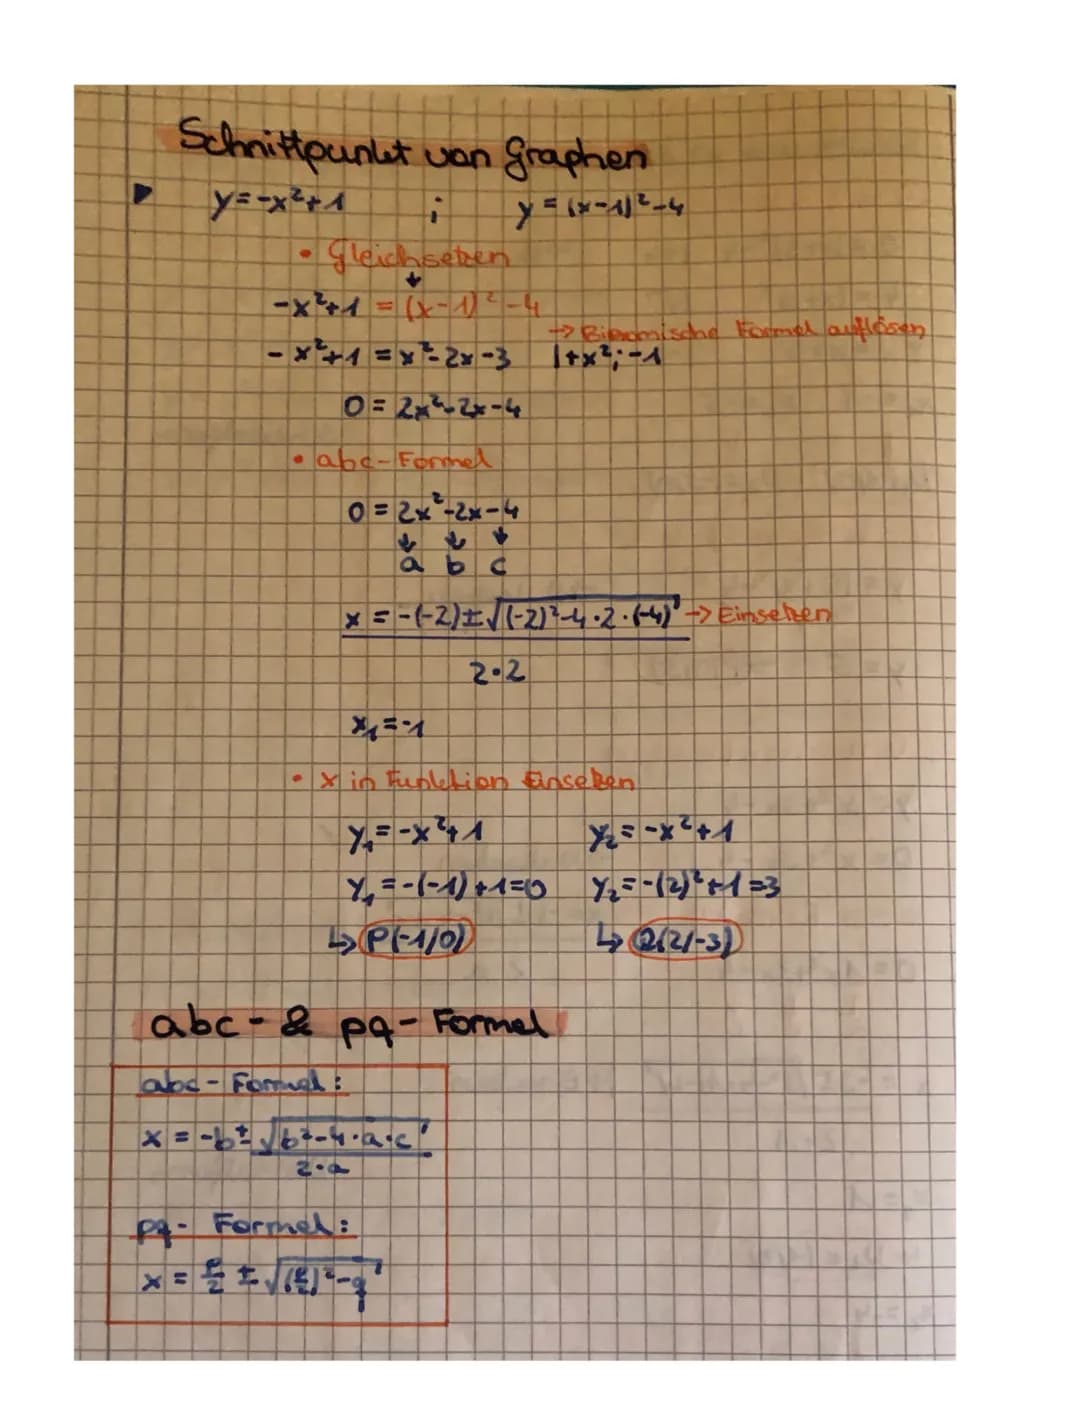 Schnittpunkt von Graphen
y=-x²+1 ; y=(x-1)²-4
• Gleichsetzen
↓
-x²+1 = (x-1)²-4
→ Binomische Formel auflösen
-x²+1 = x²-2x-3 |+x²;-1
0 = 2x²-2x-4
• abc-Formel
0 = 2x²-2x-4
↓ ↓ ↓
a b c
x = -(-2)±√(-2)²-4·2·(-4) → Einsetzen
2·2
x₁=-1
• x in Funktion Einsetzen
y₁=-x²+1 y₂=-x²+1
y₁=-(-1)+1=0 y₂=-(2)²+1=3
↳ P(-1/0) ↳ Q(2/-3)
abc- & pq-Formel
abc-Formel:
x = -b±√b²-4·a·c
2·a
pq-Formel:
x = p/2 ± √(p/2)²-q